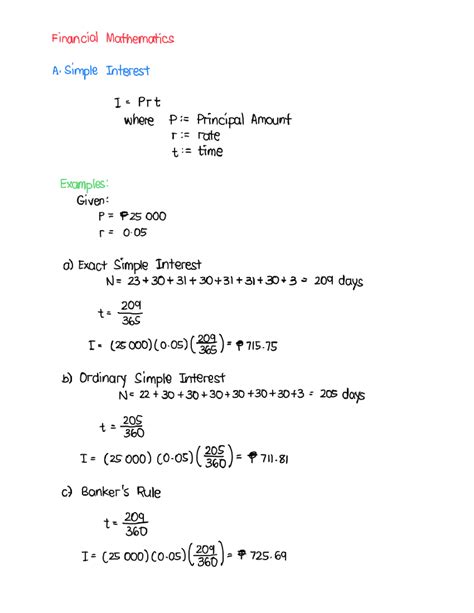 Financial Mathematics
A. Simple Interest
I = Prt
where P := Principal Amount
r := rate
t := time
Examples:
Given:
P = ₱25 000
r = 0.05
a) Exact Simple Interest
N = 23 + 30 + 31 + 30 + 31 + 31 + 30 + 3 = 209 days
t = 209/365
I = (25 000)(0.05)(209/365) = ₱715.75
b) Ordinary Simple Interest
N = 22 + 30 + 30 + 30 + 30 + 30 + 30 + 3 = 205 days
t = 205/360
I = (25 000)(0.05)(205/360) = ₱711.81
c) Banker's Rule
t = 209/360
I = (25 000)(0.05)(209/360) = ₱725.69